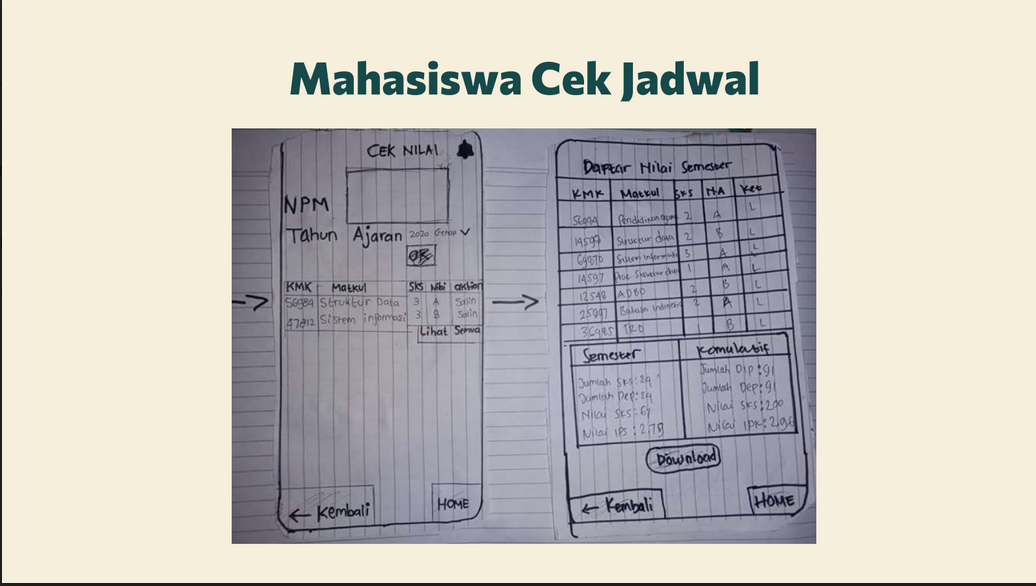 Mahasiswa Cek Jadwal
CEK NILAI
NPM
Tahun Ajaran 2020 Genap
KMK Matkul Sks Nilai aktion
56984 Struktur Data 3 A Salin
47812 Sistem informasi 3 B Salin
Lihat Semua
← Kembali
HOME
Daftar Nilai Semester
KMK Matkul SKS N.A Ket
56984 2 A L
14599 Struktur data 2 B L
64870 Sistem informasi 3 A L
14597 1 A L
12548 ADBO 2 B L
25897 Bahasa 2 A L
36985 TRO 1 B L
Semester
Jumlah SKS:
Jumlah Dep:
Nilai SKS:
Nilai IPS: 2,79
Komulatif
Jumlah Dip: 91
Jumlah Dep: 91
Nilai SKS: 200
Nilai IPK: 2,96
Download
← Kembali
HOME